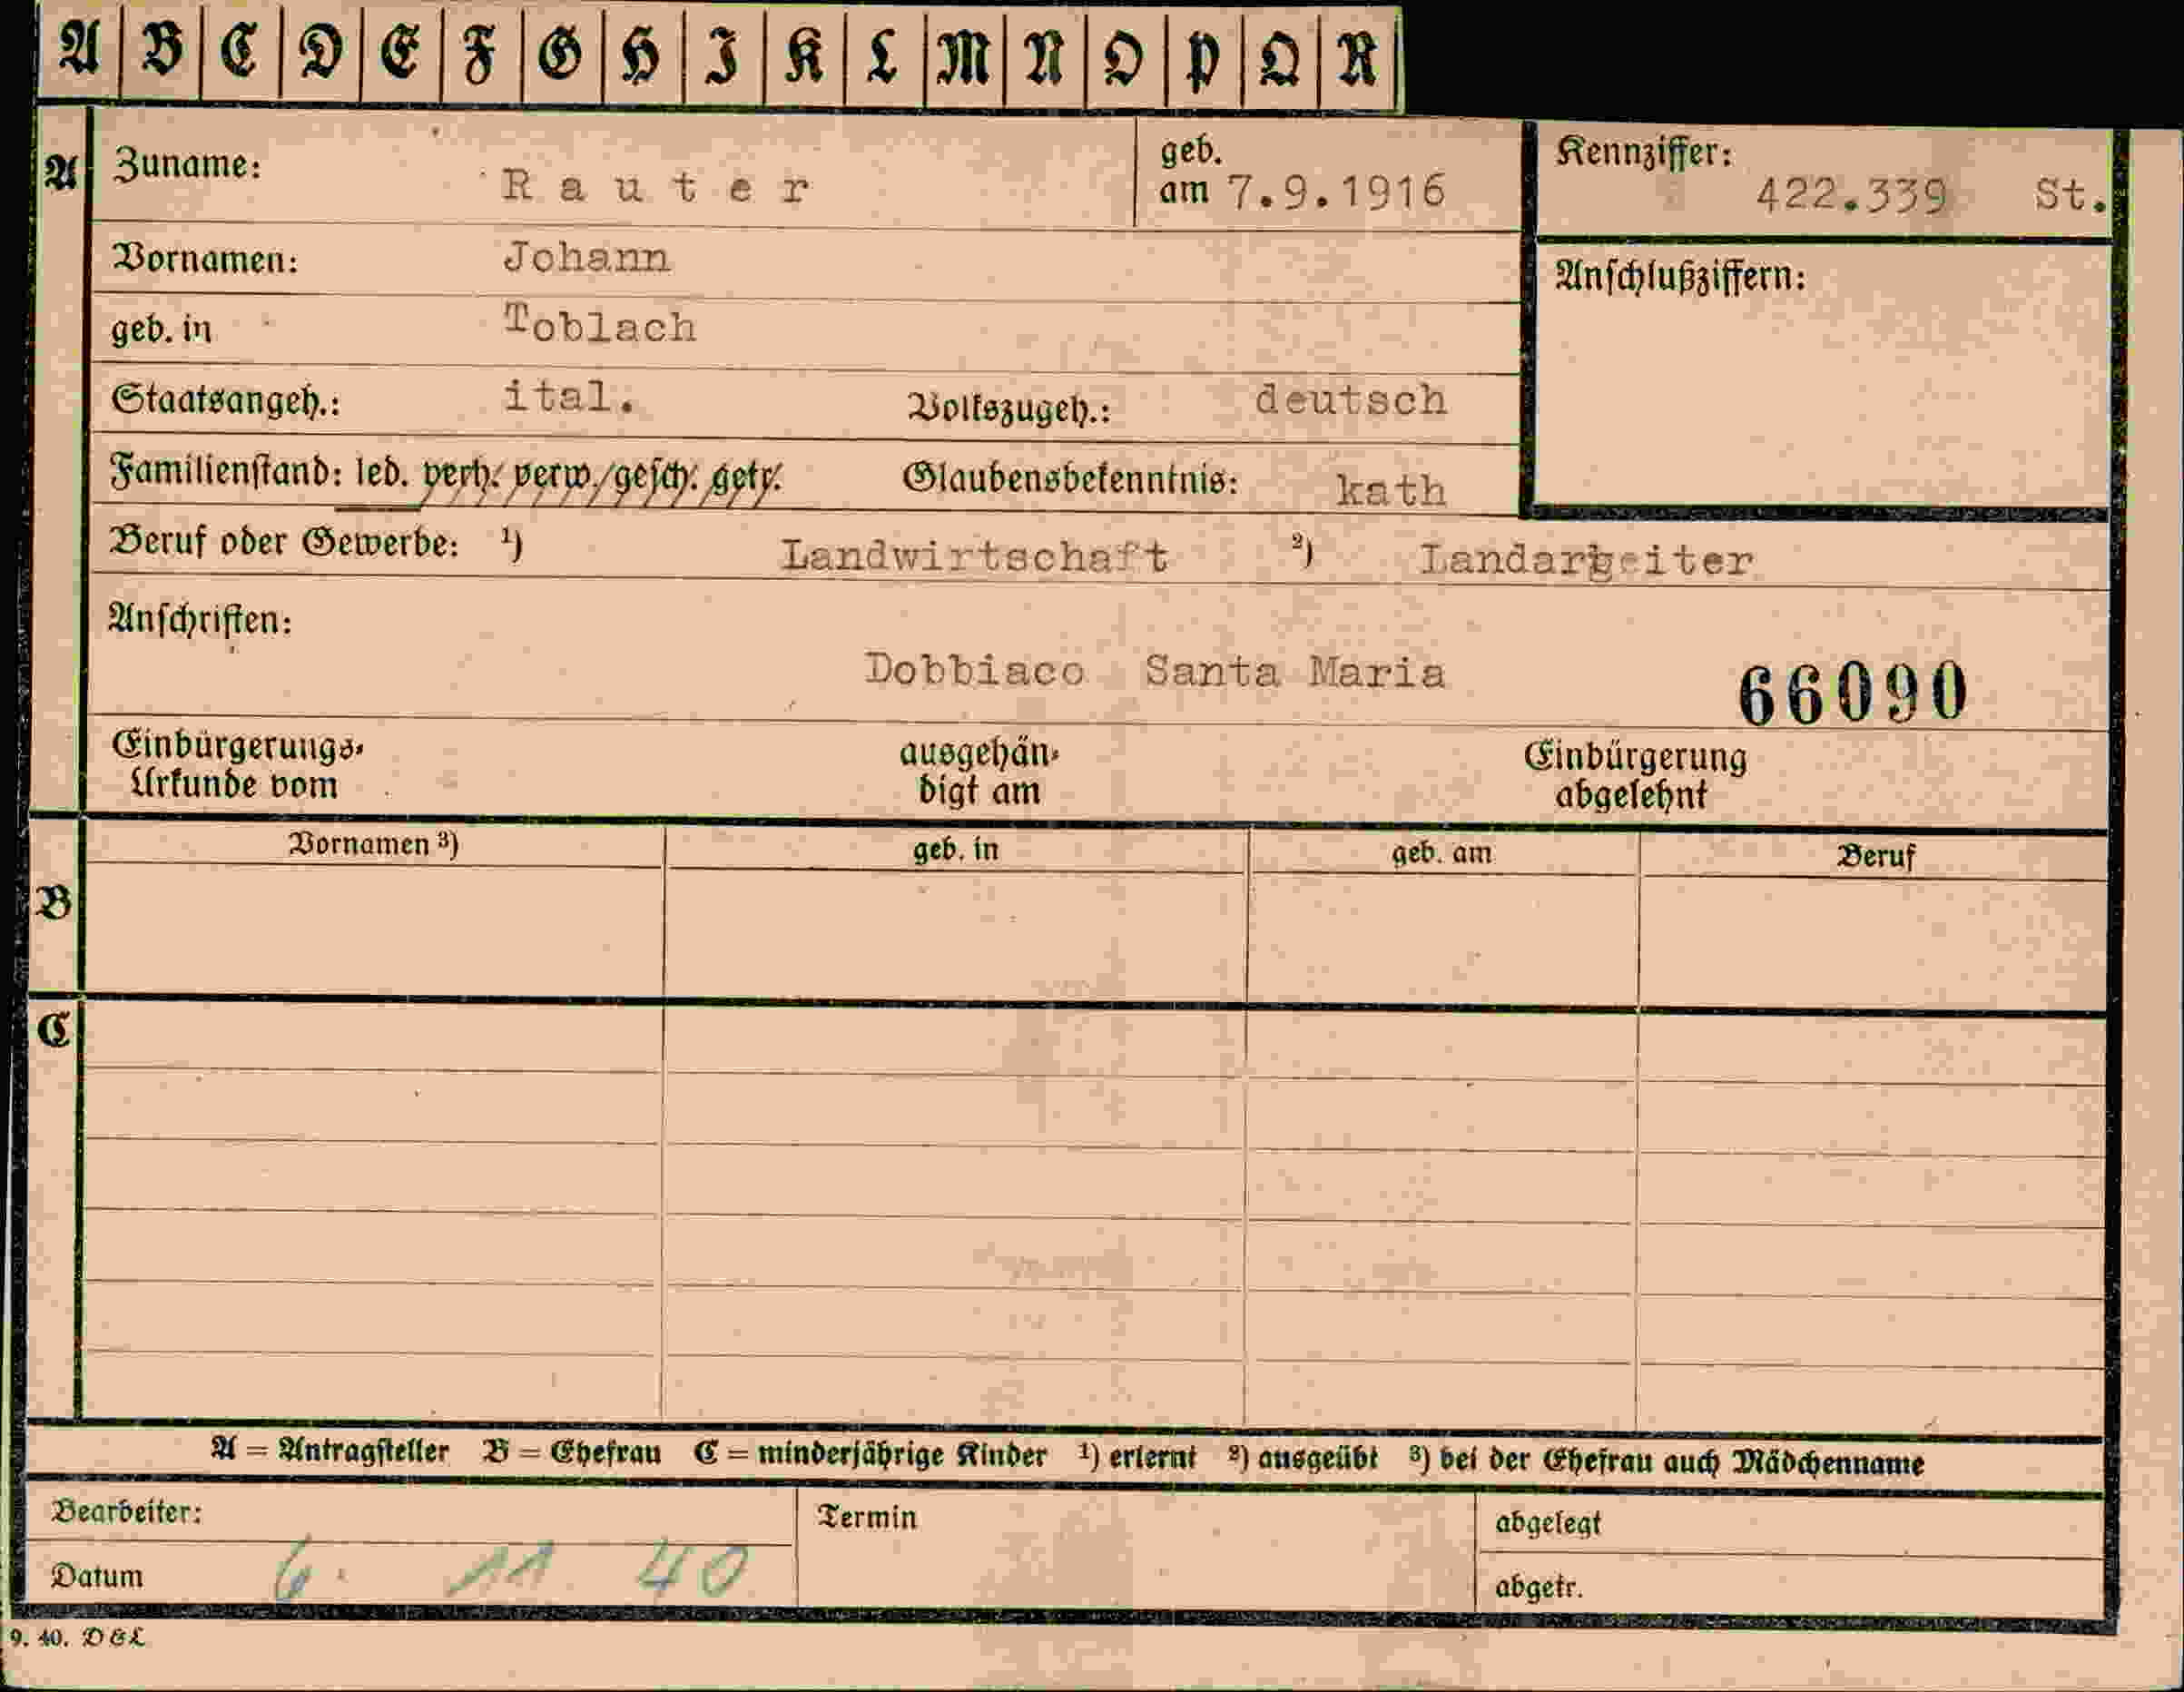 A B C D E F G H I K L M N O P Q R
A Zuname: Rauter geb. am 7.9.1916 Kennziffer: 422.339 St.
Vornamen: Johann Anschlußziffern:
geb. in Toblach
Staatsangeh.: ital. Volkszugeh.: deutsch
Familienstand: led. verh. verw./gesch. getr. Glaubensbekenntnis: kath
Beruf oder Gewerbe: 1) Landwirtschaft 2) Landarbeiter
Anschriften:
Dobbiaco Santa Maria 66090
Einbürgerungs- ausgehän- Einbürgerung
Urkunde vom digt am abgelehnt
Vornamen 3) geb. in geb. am Beruf
B
C
A = Antragsteller B = Ehefrau C = minderjährige Kinder 1) erlernt 2) ausgeübt 3) bei der Ehefrau auch Mädchenname
Bearbeiter: Termin abgelegt
Datum 6. 11 40 abgetr.
9. 40. DGL